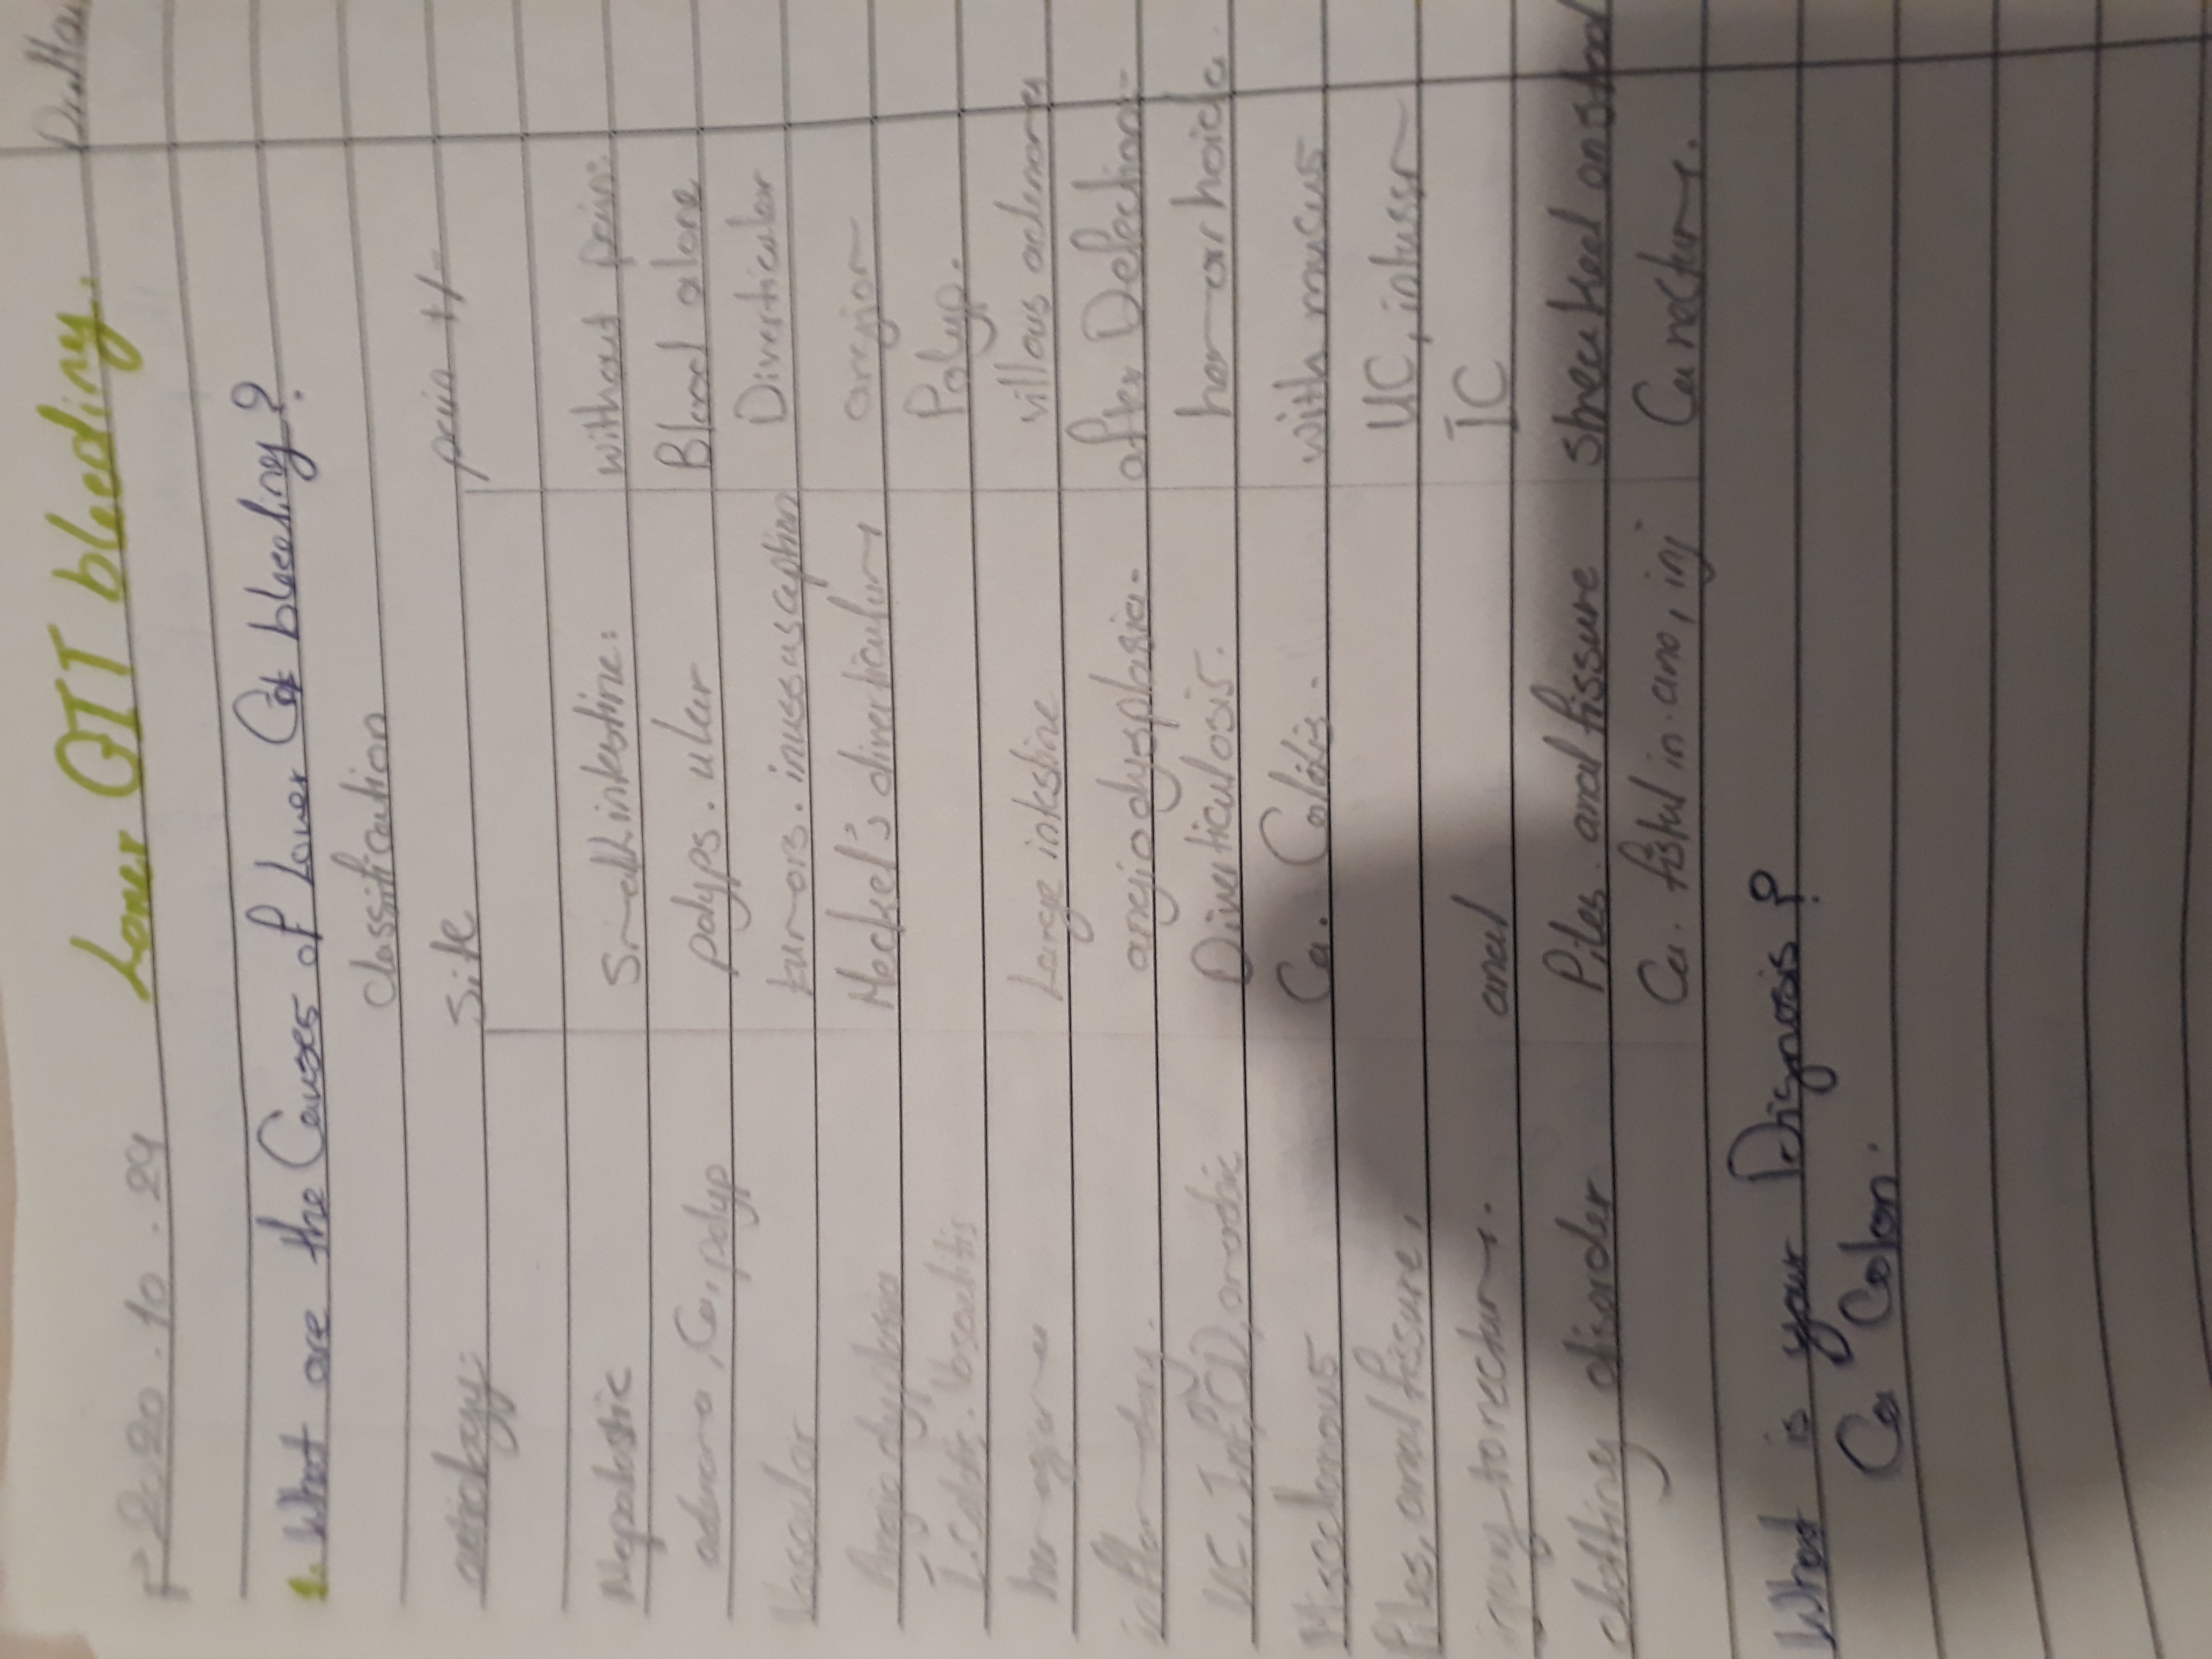 2020.10.29 Lower GIT bleeding.
1. What are the Causes of Lower GI bleeding?
classification
aetiology: Site pain +/-
Neoplastic Small intestine: without pain:
adenoma, Ca, polyp polyps. ulcer Blood alone
Vascular tumors. inussasception Diverticular
Angiodysplasia Meckel's diverticulum angiom
I.Colitis. Vascultis Polyp.
hemagiome Large intestine villous adenoma
inflammatory. angiodysplasia. after Defection:
UC, Inf, CD, amoebic Diverticulosis. hemorrhoids.
Misclenous Ca. Colitis. with mucus
Piles, anal fissure, UC, intussr
injury to rectum. anal IC
clotting disorder Piles. anal fissure streaked on stool
Ca. fistul in.ano, inj Ca rectum.
What is your Diagnosis?
Ca Colon.